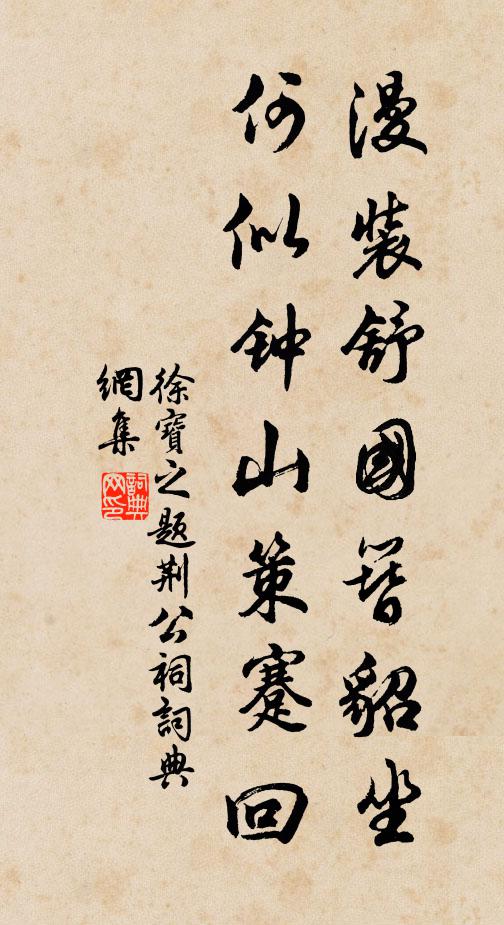 漫裝舒國簪貂坐
何似钟山策蹇回
徐寶之题荆公祠詞典
網集
詞典网印